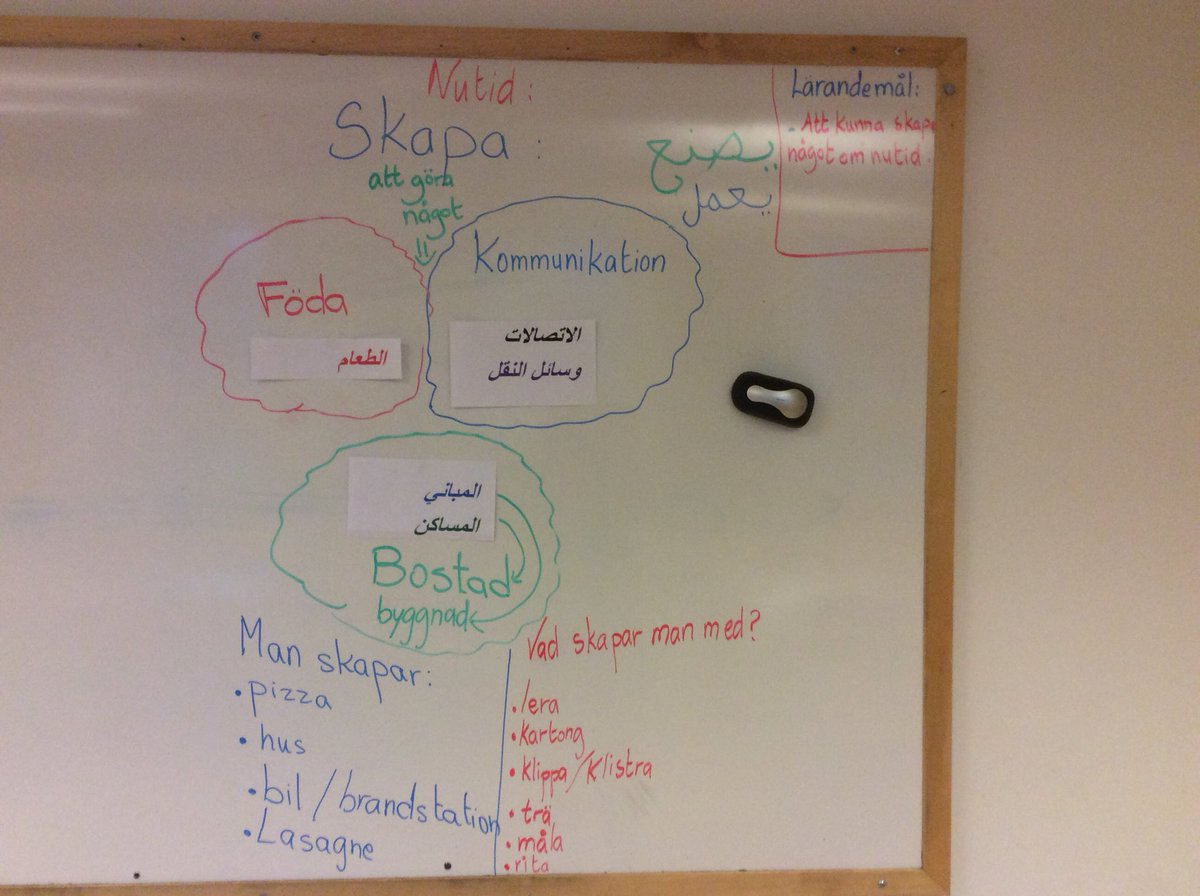 Nutid:
Skapa:
att göra
något
يصنع
يعمل
Lärandemål:
- Att kunna skapa
något om nutid.
Föda
الطعام
Kommunikation
الاتصالات
وسائل النقل
المباني
المساكن
Bostad
byggnad
Man skapar:
• pizza
• hus
• bil / brandstation
• Lasagne
Vad skapar man med?
• lera
• kartong
• klippa / klistra
• trä
• måla
• rita